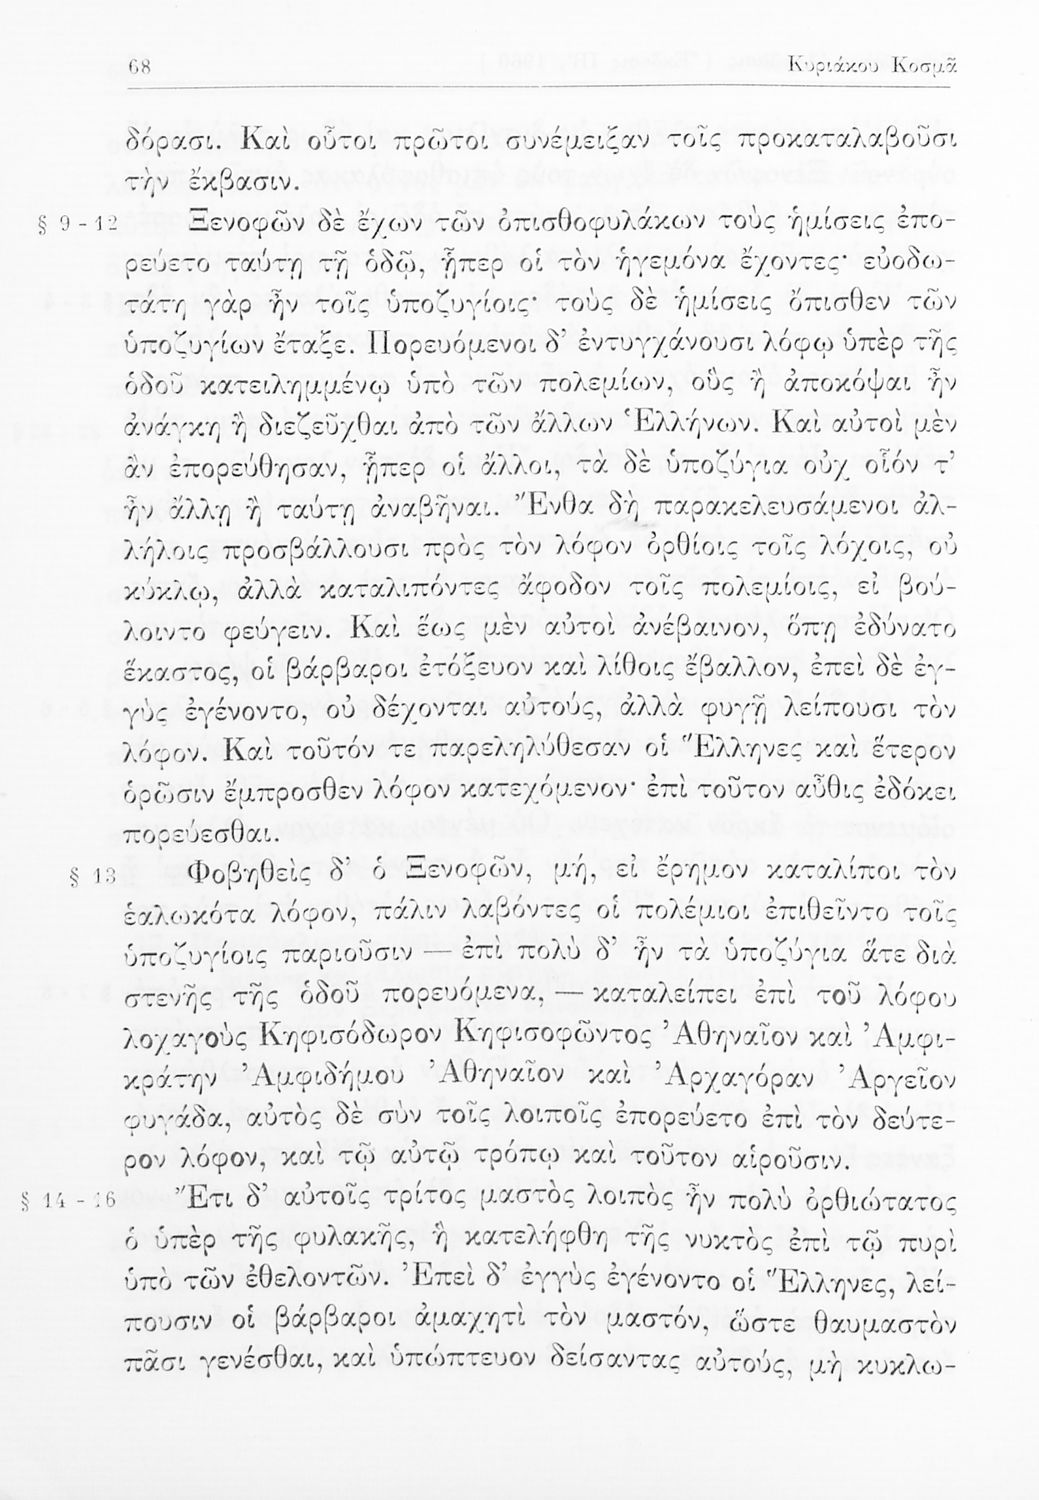 68 Κυριάκου Κοσμᾶ
δόρασι. Καὶ οὗτοι πρῶτοι συνέμειξαν τοῖς προκαταλαβοῦσι
τὴν ἔκβασιν.
§ 9 - 12 Ξενοφῶν δὲ ἔχων τῶν ὀπισθοφυλάκων τοὺς ἡμίσεις ἐπο-
ρεύετο ταύτῃ τῇ ὁδῷ, ᾗπερ οἱ τὸν ἡγεμόνα ἔχοντες· εὐοδω-
τάτη γὰρ ἦν τοῖς ὑποζυγίοις· τοὺς δὲ ἡμίσεις ὄπισθεν τῶν
ὑποζυγίων ἔταξε. Πορευόμενοι δ’ ἐντυγχάνουσι λόφῳ ὑπὲρ τῆς
ὁδοῦ κατειλημμένῳ ὑπὸ τῶν πολεμίων, οὓς ἢ ἀποκόψαι ἦν
ἀνάγκη ἢ διεζεῦχθαι ἀπὸ τῶν ἄλλων Ἑλλήνων. Καὶ αὐτοὶ μὲν
ἂν ἐπορεύθησαν, ᾗπερ οἱ ἄλλοι, τὰ δὲ ὑποζύγια οὐχ οἷόν τ’
ἦν ἄλλῃ ἢ ταύτῃ ἀναβῆναι. Ἔνθα δὴ παρακελευσάμενοι ἀλ-
λήλοις προσβάλλουσι πρὸς τὸν λόφον ὀρθίοις τοῖς λόχοις, οὐ
κύκλῳ, ἀλλὰ καταλιπόντες ἄφοδον τοῖς πολεμίοις, εἰ βού-
λοιντο φεύγειν. Καὶ ἕως μὲν αὐτοὶ ἀνέβαινον, ὅπῃ ἐδύνατο
ἕκαστος, οἱ βάρβαροι ἐτόξευον καὶ λίθοις ἔβαλλον, ἐπεὶ δὲ ἐγ-
γὺς ἐγένοντο, οὐ δέχονται αὐτούς, ἀλλὰ φυγῇ λείπουσι τὸν
λόφον. Καὶ τοῦτόν τε παρεληλύθεσαν οἱ Ἕλληνες καὶ ἕτερον
ὁρῶσιν ἔμπροσθεν λόφον κατεχόμενον· ἐπὶ τοῦτον αὖθις ἐδόκει
πορεύεσθαι.
§ 13 Φοβηθεὶς δ’ ὁ Ξενοφῶν, μή, εἰ ἔρημον καταλίποι τὸν
ἑαλωκότα λόφον, πάλιν λαβόντες οἱ πολέμιοι ἐπιθεῖντο τοῖς
ὑποζυγίοις παριοῦσιν — ἐπὶ πολὺ δ’ ἦν τὰ ὑποζύγια ἅτε διὰ
στενῆς τῆς ὁδοῦ πορευόμενα, — καταλείπει ἐπὶ τοῦ λόφου
λοχαγοὺς Κηφισόδωρον Κηφισοφῶντος Ἀθηναῖον καὶ Ἀμφι-
κράτην Ἀμφιδήμου Ἀθηναῖον καὶ Ἀρχαγόραν Ἀργεῖον
φυγάδα, αὐτὸς δὲ σὺν τοῖς λοιποῖς ἐπορεύετο ἐπὶ τὸν δεύτε-
ρον λόφον, καὶ τῷ αὐτῷ τρόπῳ καὶ τοῦτον αἱροῦσιν.
§ 14 - 16 Ἔτι δ’ αὐτοῖς τρίτος μαστὸς λοιπὸς ἦν πολὺ ὀρθιώτατος
ὁ ὑπὲρ τῆς φυλακῆς, ἣ κατελήφθη τῆς νυκτὸς ἐπὶ τῷ πυρὶ
ὑπὸ τῶν ἐθελοντῶν. Ἐπεὶ δ’ ἐγγὺς ἐγένοντο οἱ Ἕλληνες, λεί-
πουσιν οἱ βάρβαροι ἀμαχητὶ τὸν μαστόν, ὥστε θαυμαστὸν
πᾶσι γενέσθαι, καὶ ὑπώπτευον δείσαντας αὐτούς, μὴ κυκλω-